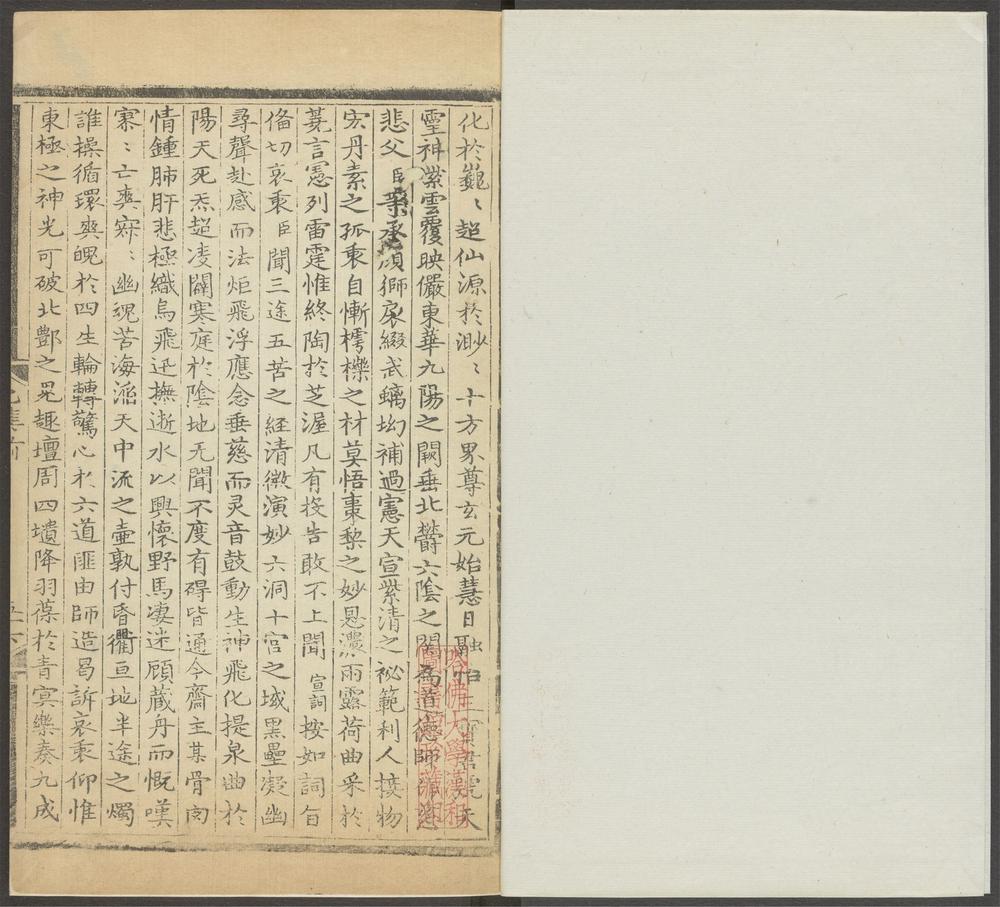 化於巍〻超仙源於渺〻十方界尊玄元始慧日融怡
霊神紫雲覆映儼東華九陽之闕垂北欝六陰之関為道德師
悲父臣業承頒獅扆綴武螭坳補過憲天宣紫清之袐範利人接物
宏丹素之孤衷自慚樗櫟之材莫悟棗棃之妙恩濃雨露荷曲采於
蕘言憲列雷霆惟終陶於芝渥凡有投告敢不上聞宣詞按如詞旨
俻切哀衷臣聞三途五苦之経清微演妙六洞十宫之域黒壘凝幽
尋聲赴感而法炬飛浮應念垂慈而灵音鼓動生神飛化提泉曲於
陽天死炁超凌闢寒庭於陰地无聞不度有碍皆通今齋主某骨肉
情鍾肺肝悲極織烏飛迅撫逝水以興懷野馬凄迷顧蔵舟而慨嘆
寨〻亡爽冥〻幽魂苦海滔天中流之壷孰付昏衢亘地半途之燭
誰操循環爽魄於四生輪轉驚心於六道匪由師造曷訴哀衷仰惟
東極之神光可破北酆之罪趣壇周四壝降羽葆於青冥樂奏九成
集前
哈佛大學漢和
圖書館珍藏印